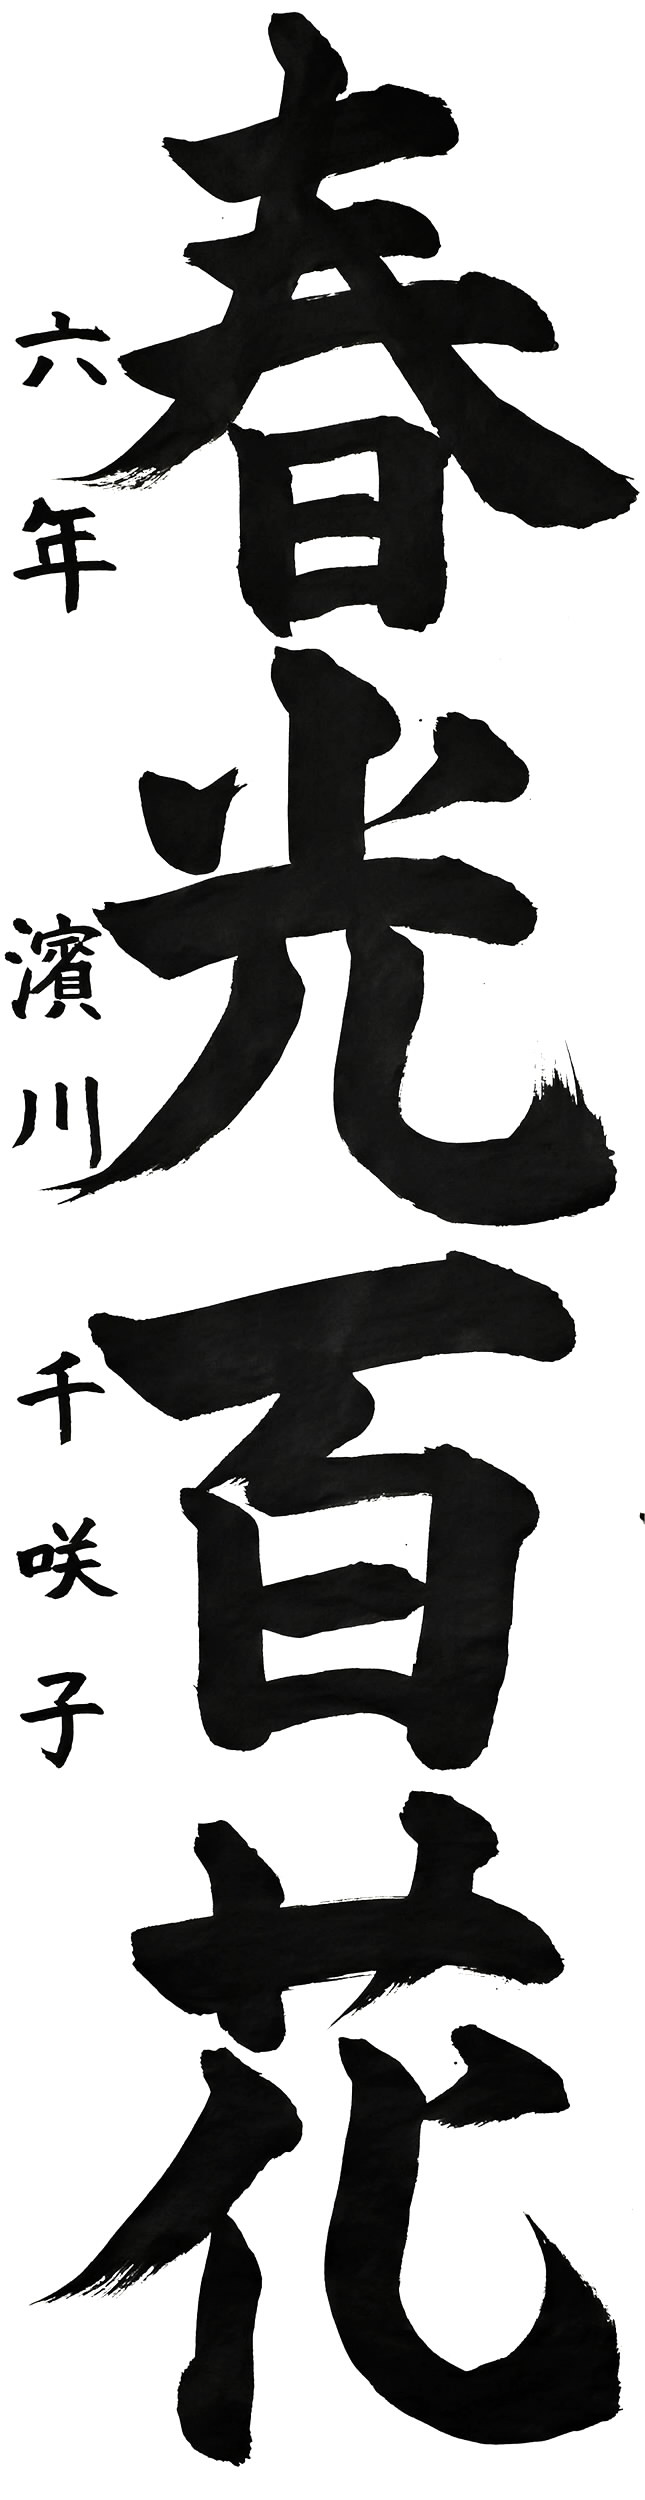 春光百花
六年 濱川千咲子